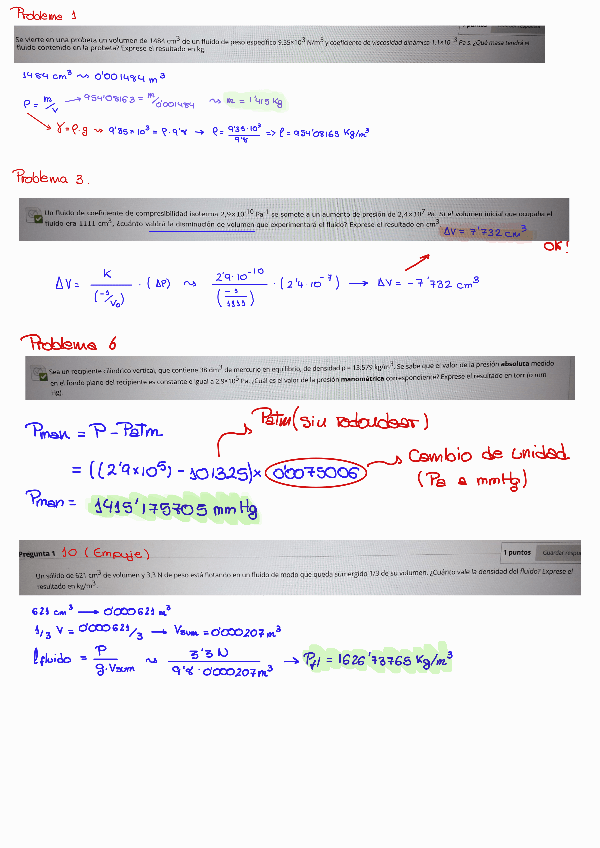 Problema 1
1 puntos
Se vierte en una probeta un volumen de 1484 cm³ de un fluido de peso específico 9.35×10³ N/m³ y coeficiente de viscosidad dinámica 1,1×10⁻³ Pa·s. ¿Qué masa tendrá el
fluido contenido en la probeta? Exprese el resultado en kg
1484 cm³ ⇝ 0'001484 m³
ρ = m/V → 954'08163 = m/0'001484 ⇝ m = 1'415 Kg
γ = ρ·g ⇝ 9'35×10³ = ρ·9'8 → ρ = 9'35·10³/9'8 => ρ = 954'08163 Kg/m³
Problema 3.
Un fluido de coeficiente de compresibilidad isoterma 2,9×10⁻¹⁰ Pa⁻¹ se somete a un aumento de presión de 2,4×10⁷ Pa. Si el volumen inicial que ocupaba el
fluido era 1111 cm³, ¿cuánto valdrá la disminución de volumen que experimentará el fluido? Exprese el resultado en cm³
ΔV = 7'732 cm³
OK!
ΔV = K/(-1/V₀) · (ΔP) ⇝ 2'9·10⁻¹⁰/(-1/1111) · (2'4·10⁻⁷) → ΔV = -7'732 cm³
Problema 6
Sea un recipiente cilíndrico vertical, que contiene 38 cm³ de mercurio en equilibrio, de densidad ρ = 13,579 kg/m³. Se sabe que el valor de la presión absoluta medido
en el fondo plano del recipiente es constante e igual a 2.9×10⁵ Pa. ¿Cuál es el valor de la presión manométrica correspondiente? Exprese el resultado en torr (o mm
Hg)
Patm (sin redondear)
Pman = P - Patm
= ((2'9×10⁵) - 101325) × 0'0075006
Cambio de unidad
(Pa a mmHg)
Pman = 1415'175705 mmHg
Pregunta 1 10 (Empuje)
1 puntos
Guardar
Un sólido de 621 cm³ de volumen y 3,3 N de peso está flotando en un fluido de modo que queda sumergido 1/3 de su volumen. ¿Cuánto vale la densidad del fluido? Exprese el
resultado en kg/m³.
621 cm³ → 0'000621 m³
1/3 V = 0'000621/3 → Vsum = 0'000207 m³
ρfluido = P/g·Vsum ⇝ 3'3 N/9'8·0'000207 m³ → ρfl = 1626'73765 Kg/m³